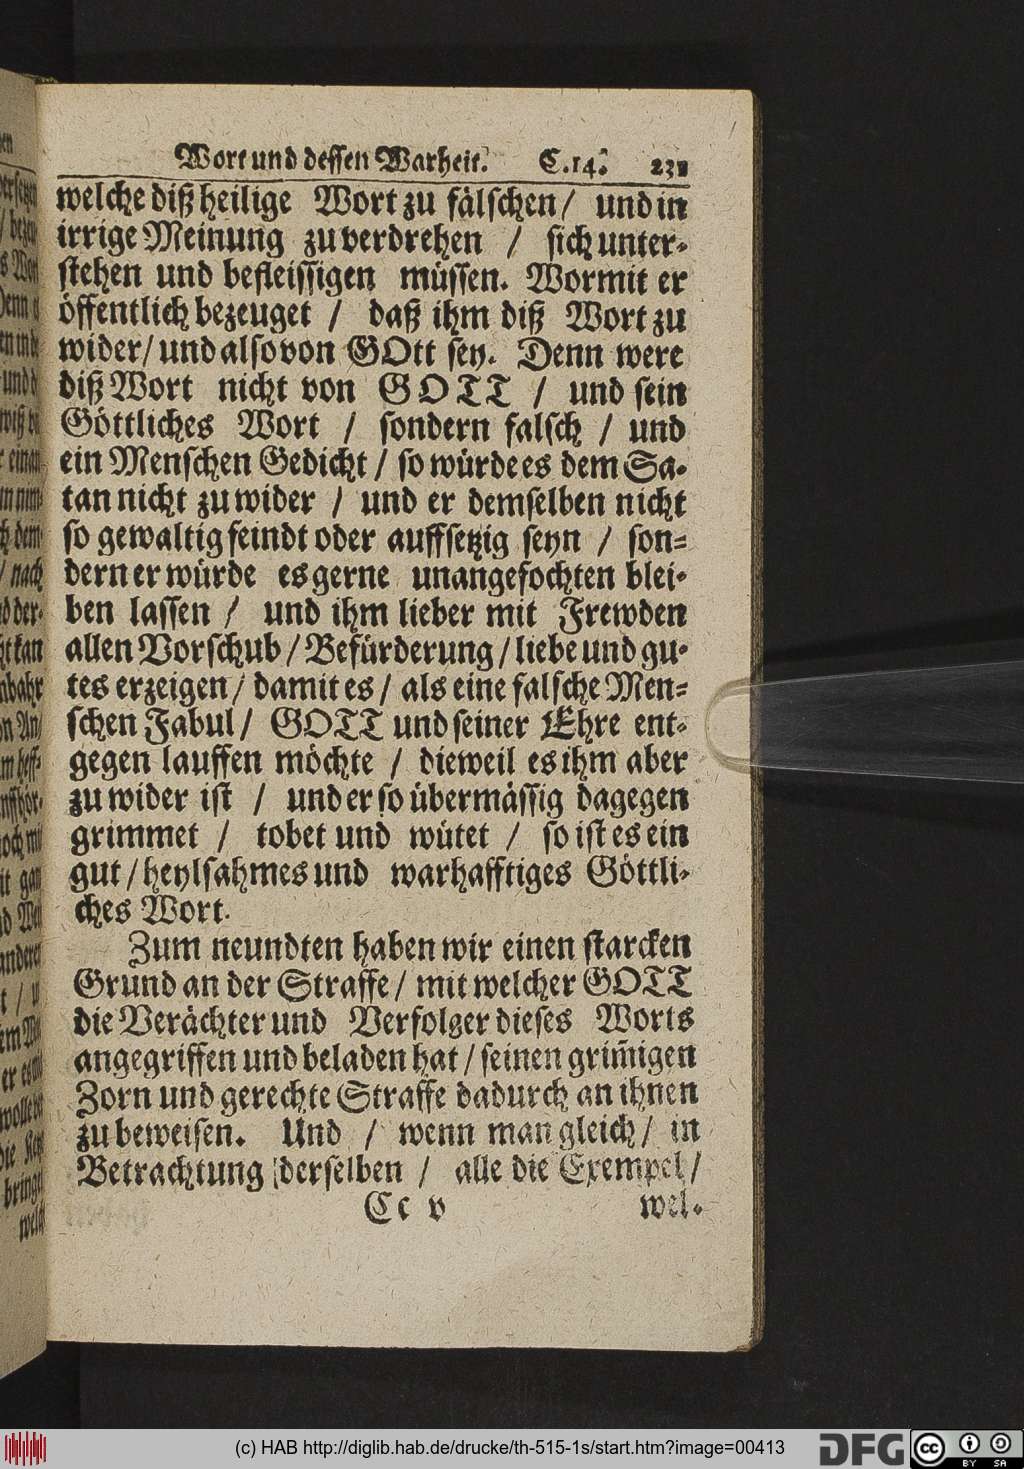 Wort und dessen Warheit. C. 14.
welche diß heilige Wort zu fälschen / und in
irrige Meinung zu verdrehen / sich unter-
stehen und befleissigen müssen. Wormit er
öffentlich bezeuget / daß ihm diß Wort zu
wider / und also von GOtt sey. Denn were
diß Wort nicht von GOTT / und sein
Göttliches Wort / sondern falsch / und
ein Menschen Gedicht / so würde es dem Sa-
tan nicht zu wider / und er demselben nicht
so gewaltig feindt oder auffsetzig seyn / son-
dern er würde es gerne unangefochten blei-
ben lassen / und ihm lieber mit Frewden
allen Vorschub / Befürderung / liebe und gu-
tes erzeigen / damit es / als eine falsche Men-
schen Fabul / GOTT und seiner Ehre ent-
gegen lauffen möchte / dieweil es ihm aber
zu wider ist / und er so übermässig dagegen
grimmet / tobet und wütet / so ist es ein
gut / heylsahmes und warhafftiges Göttli-
ches Wort.
Zum neundten haben wir einen starcken
Grund an der Straffe / mit welcher GOTT
die Verächter und Verfolger dieses Worts
angegriffen und beladen hat / seinen grim̃igen
Zorn und gerechte Straffe dadurch an ihnen
zu beweisen. Und / wenn man gleich / in
Betrachtung derselben / alle die Exempel /
Cc v wel-
(c) HAB http://diglib.hab.de/drucke/th-515-1s/start.htm?image=00413
DFG
cc BY SA